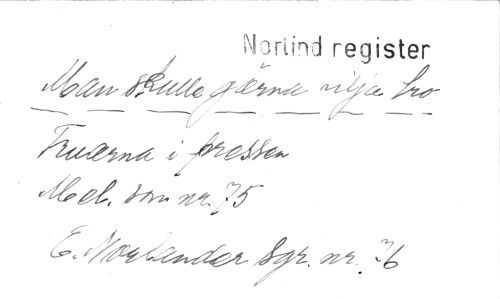 Norlind register
Man skulle gärna vilja tro
Fruarna i pressen
Mel. som nr. 75
E. Norlander Sgr. nr. 76